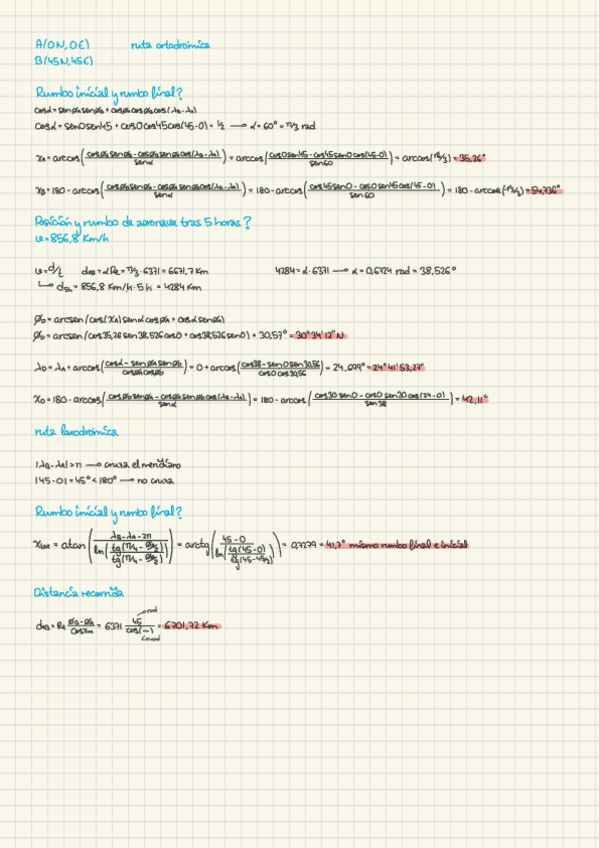 A(0N,0E) ruta ortodrómica
B(45N,45E)
Rumbo inicial y rumbo final?
cosα = senφA senφB + cosφA cosφB cos(λB-λA)
cosα = sen0sen45 + cos0cos45cos(45-0) = 1/2 → α = 60° = π/3 rad
χA = arccos((cosφA senφB - cosφB senφA cos(λB-λA))/senα) = arccos((cos0sen45 - cos45sen0cos(45-0))/sen60) = 35,26°
χB = 180 - arccos((cosφB senφA - cosφA senφB cos(λB-λA))/senα) = 180 - arccos((cos45sen0 - cos0sen45cos(45-0))/sen60) = 54,736°
Posición y rumbo de aeronave tras 5 horas?
v = 856,8 Km/h
v = d/t dAB = αRe = π/3 · 6371 = 6671,7 Km 4284 = α·6371 → α = 0,6724 rad = 38,526°
↳ d5h = 856,8 Km/h · 5 h = 4284 Km
φD = arcsen(cos(χA)senα cosφA + cosα senφA)
φD = arcsen(cos35,26 sen38,526 cos0 + cos38,526 sen0) = 30,57° = 30°34'12"N
λD = λA + arccos((cosα - senφA senφD)/cosφA cosφD) = 0 + arccos((cos38 - sen0 sen30,56)/cos0 cos30,56) = 24°41'53,27"
χD = 180 - arccos(/senα) = 180 - arccos((cos30 sen0 - cos0 sen30 cos(24-0))/sen38) = 42,11°
ruta loxodrómica
|λB-λA| > π → cruza el meridiano
|45-0| = 45° < 180° → no cruza
Rumbo inicial y rumbo final?
χlox = atan((λB-λA-2π)/ln()) = arctg((45-0)/ln()) = 0,7279 = 41,7° mismo rumbo final e inicial
Distancia recorrida
dAB = Re (φB-φA)/cosχlox = 6371 45/cos(~) = 6701,72 Km
rad